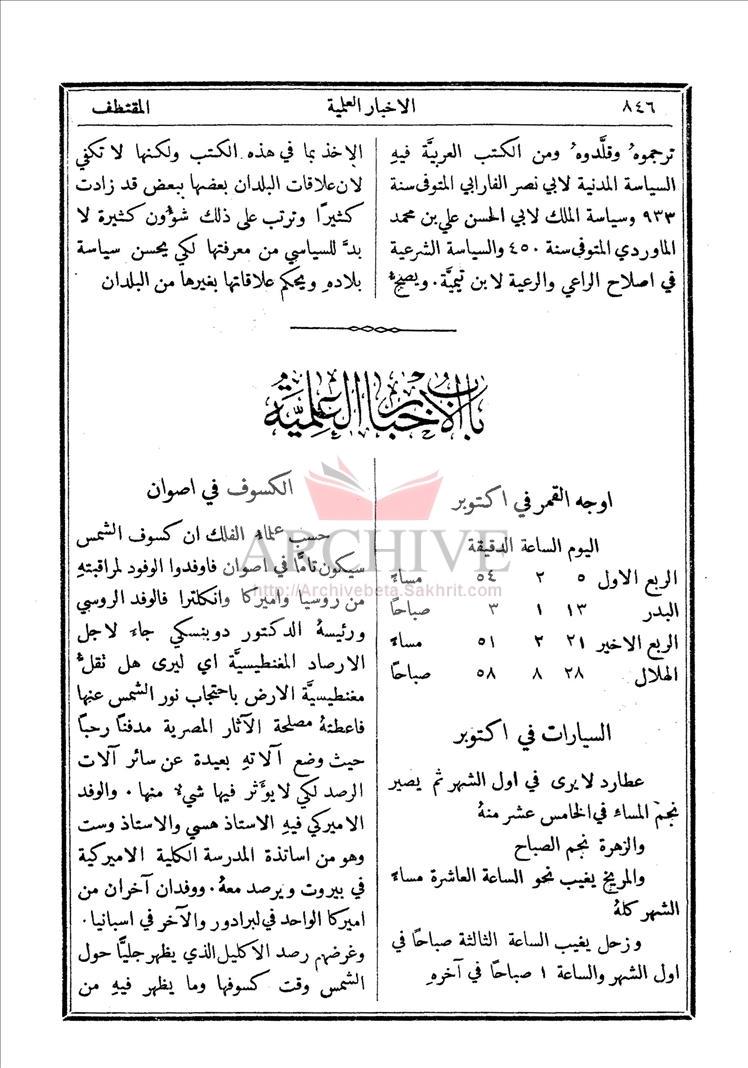 ٨٤٦
الاخبار العلمية
المقتطف
ترجموهُ وقلَّدوهُ ومن الكتب العربيَّة فيهِ
السياسة المدنية لابي نصر الفارابي المتوفى سنة
٩٣٣ وسياسة الملك لابي الحسن علي بن محمد
الماوردي المتوفى سنة ٤٥٠ والسياسة الشرعية
في اصلاح الراعي والرعية لابن تيميَّة. ويصحُّ
الاخذ بما في هذه الكتب ولكنها لا تكفي
لان علاقات البلدان بعضها ببعض قد زادت
كثيرًا وترتب على ذلك شؤون كثيرة لا
بدَّ للسياسي من معرفتها لكي يحسن سياسة
بلادهِ ويحكم علاقاتها بغيرها من البلدان
باب الاخبار العلميَّة
اوجه القمر في اكتوبر
اليوم الساعة الدقيقة
الربع الاول ٥ ٢ ٥٤ مساءً
البدر ١٣ ١ ٣ صباحًا
الربع الاخير ٢١ ٢ ٥١ مساءً
الهلال ٢٨ ٨ ٥٨ صباحًا
السيارات في اكتوبر
عطارد لا يرى في اول الشهر ثم يصير
نجم المساء في الخامس عشر منهُ
والزهرة نجم الصباح
والمريخ يغيب نحو الساعة العاشرة مساءً
الشهر كلهُ
وزحل يغيب الساعة الثالثة صباحًا في
اول الشهر والساعة ١ صباحًا في آخرهِ
الكسوف في اصوان
حسب علماء الفلك ان كسوف الشمس
سيكون تامًّا في اصوان فاوفدوا الوفود لمراقبتهِ
من روسيا واميركا وانكلترا فالوفد الروسي
ورئيسهُ الدكتور دوبنسكي جاء لاجل
الارصاد المغنطيسيَّة اي ليرى هل تقلُّ
مغنطيسيَّة الارض باحتجاب نور الشمس عنها
فاعطتهُ مصلحة الآثار المصرية مدفنًا رحبًا
حيث وضع آلاتهِ بعيدة عن سائر آلات
الرصد لكي لا يؤَثر فيها شيءٌ منها. والوفد
الاميركي فيهِ الاستاذ هسي والاستاذ وست
وهو من اساتذة المدرسة الكلية الاميركية
في بيروت ويرصد معهُ. ووفدان آخران من
اميركا الواحد في لبرادور والآخر في اسبانيا.
وغرضهم رصد الاكليل الذي يظهر جليًّا حول
الشمس وقت كسوفها وما يظهر فيهِ من
ARCHIVE
http://Archivebeta.Sakhrit.com